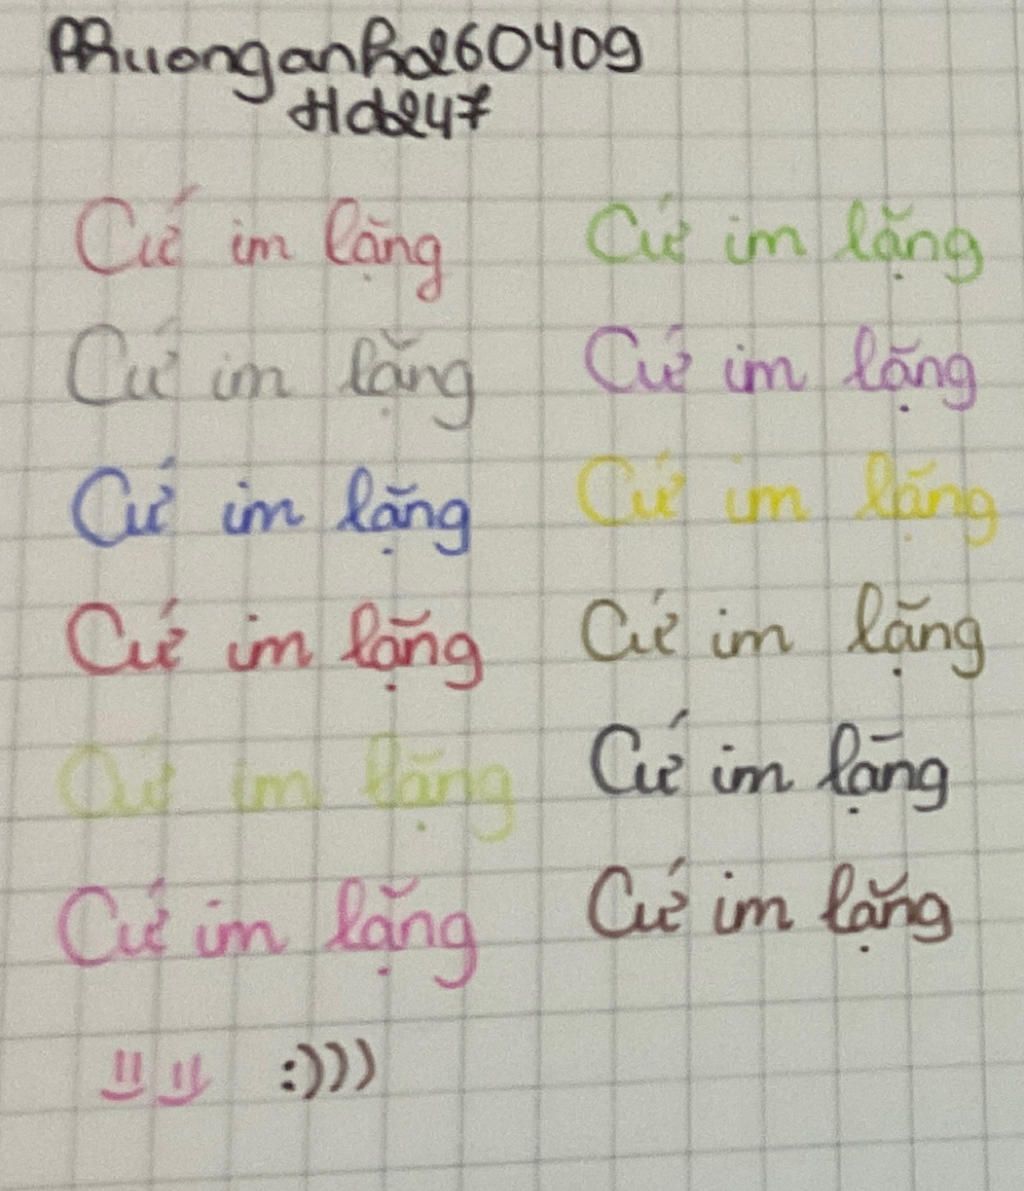 Phuonganha260409
Hdz247
Cứ im lặng Cứ im lặng
Cứ im lặng Cứ im lặng
Cứ im lặng Cứ im lặng
Cứ im lặng Cứ im lặng
Cứ im lặng Cứ im lặng
Cứ im lặng Cứ im lặng
:)))